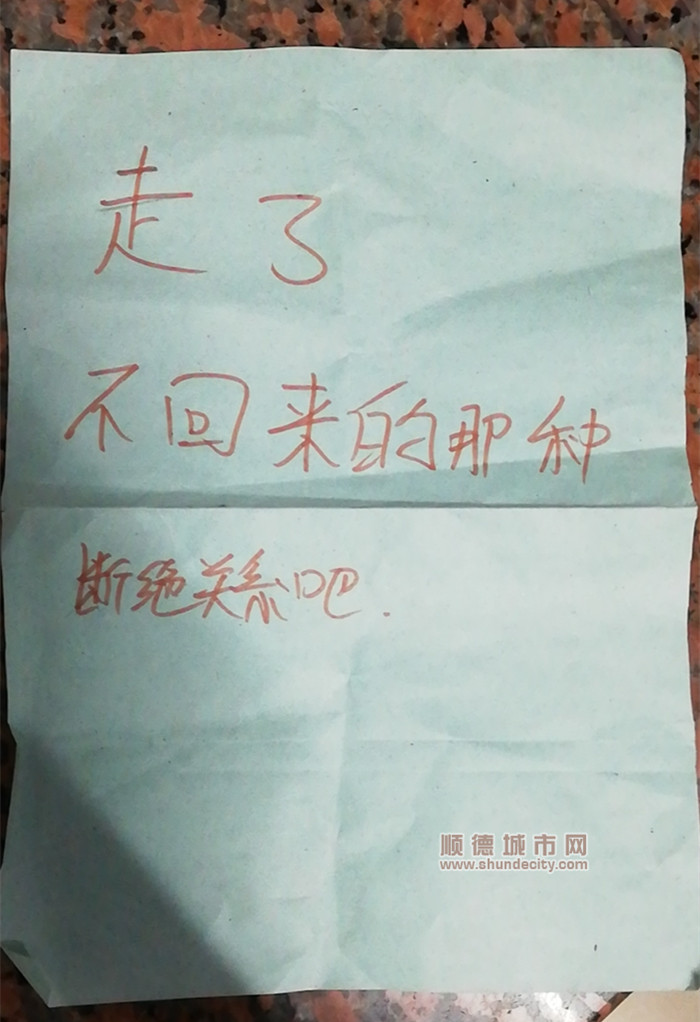 走了
不回来的那种
断绝关系吧.
顺德城市网
www.shundecity.com